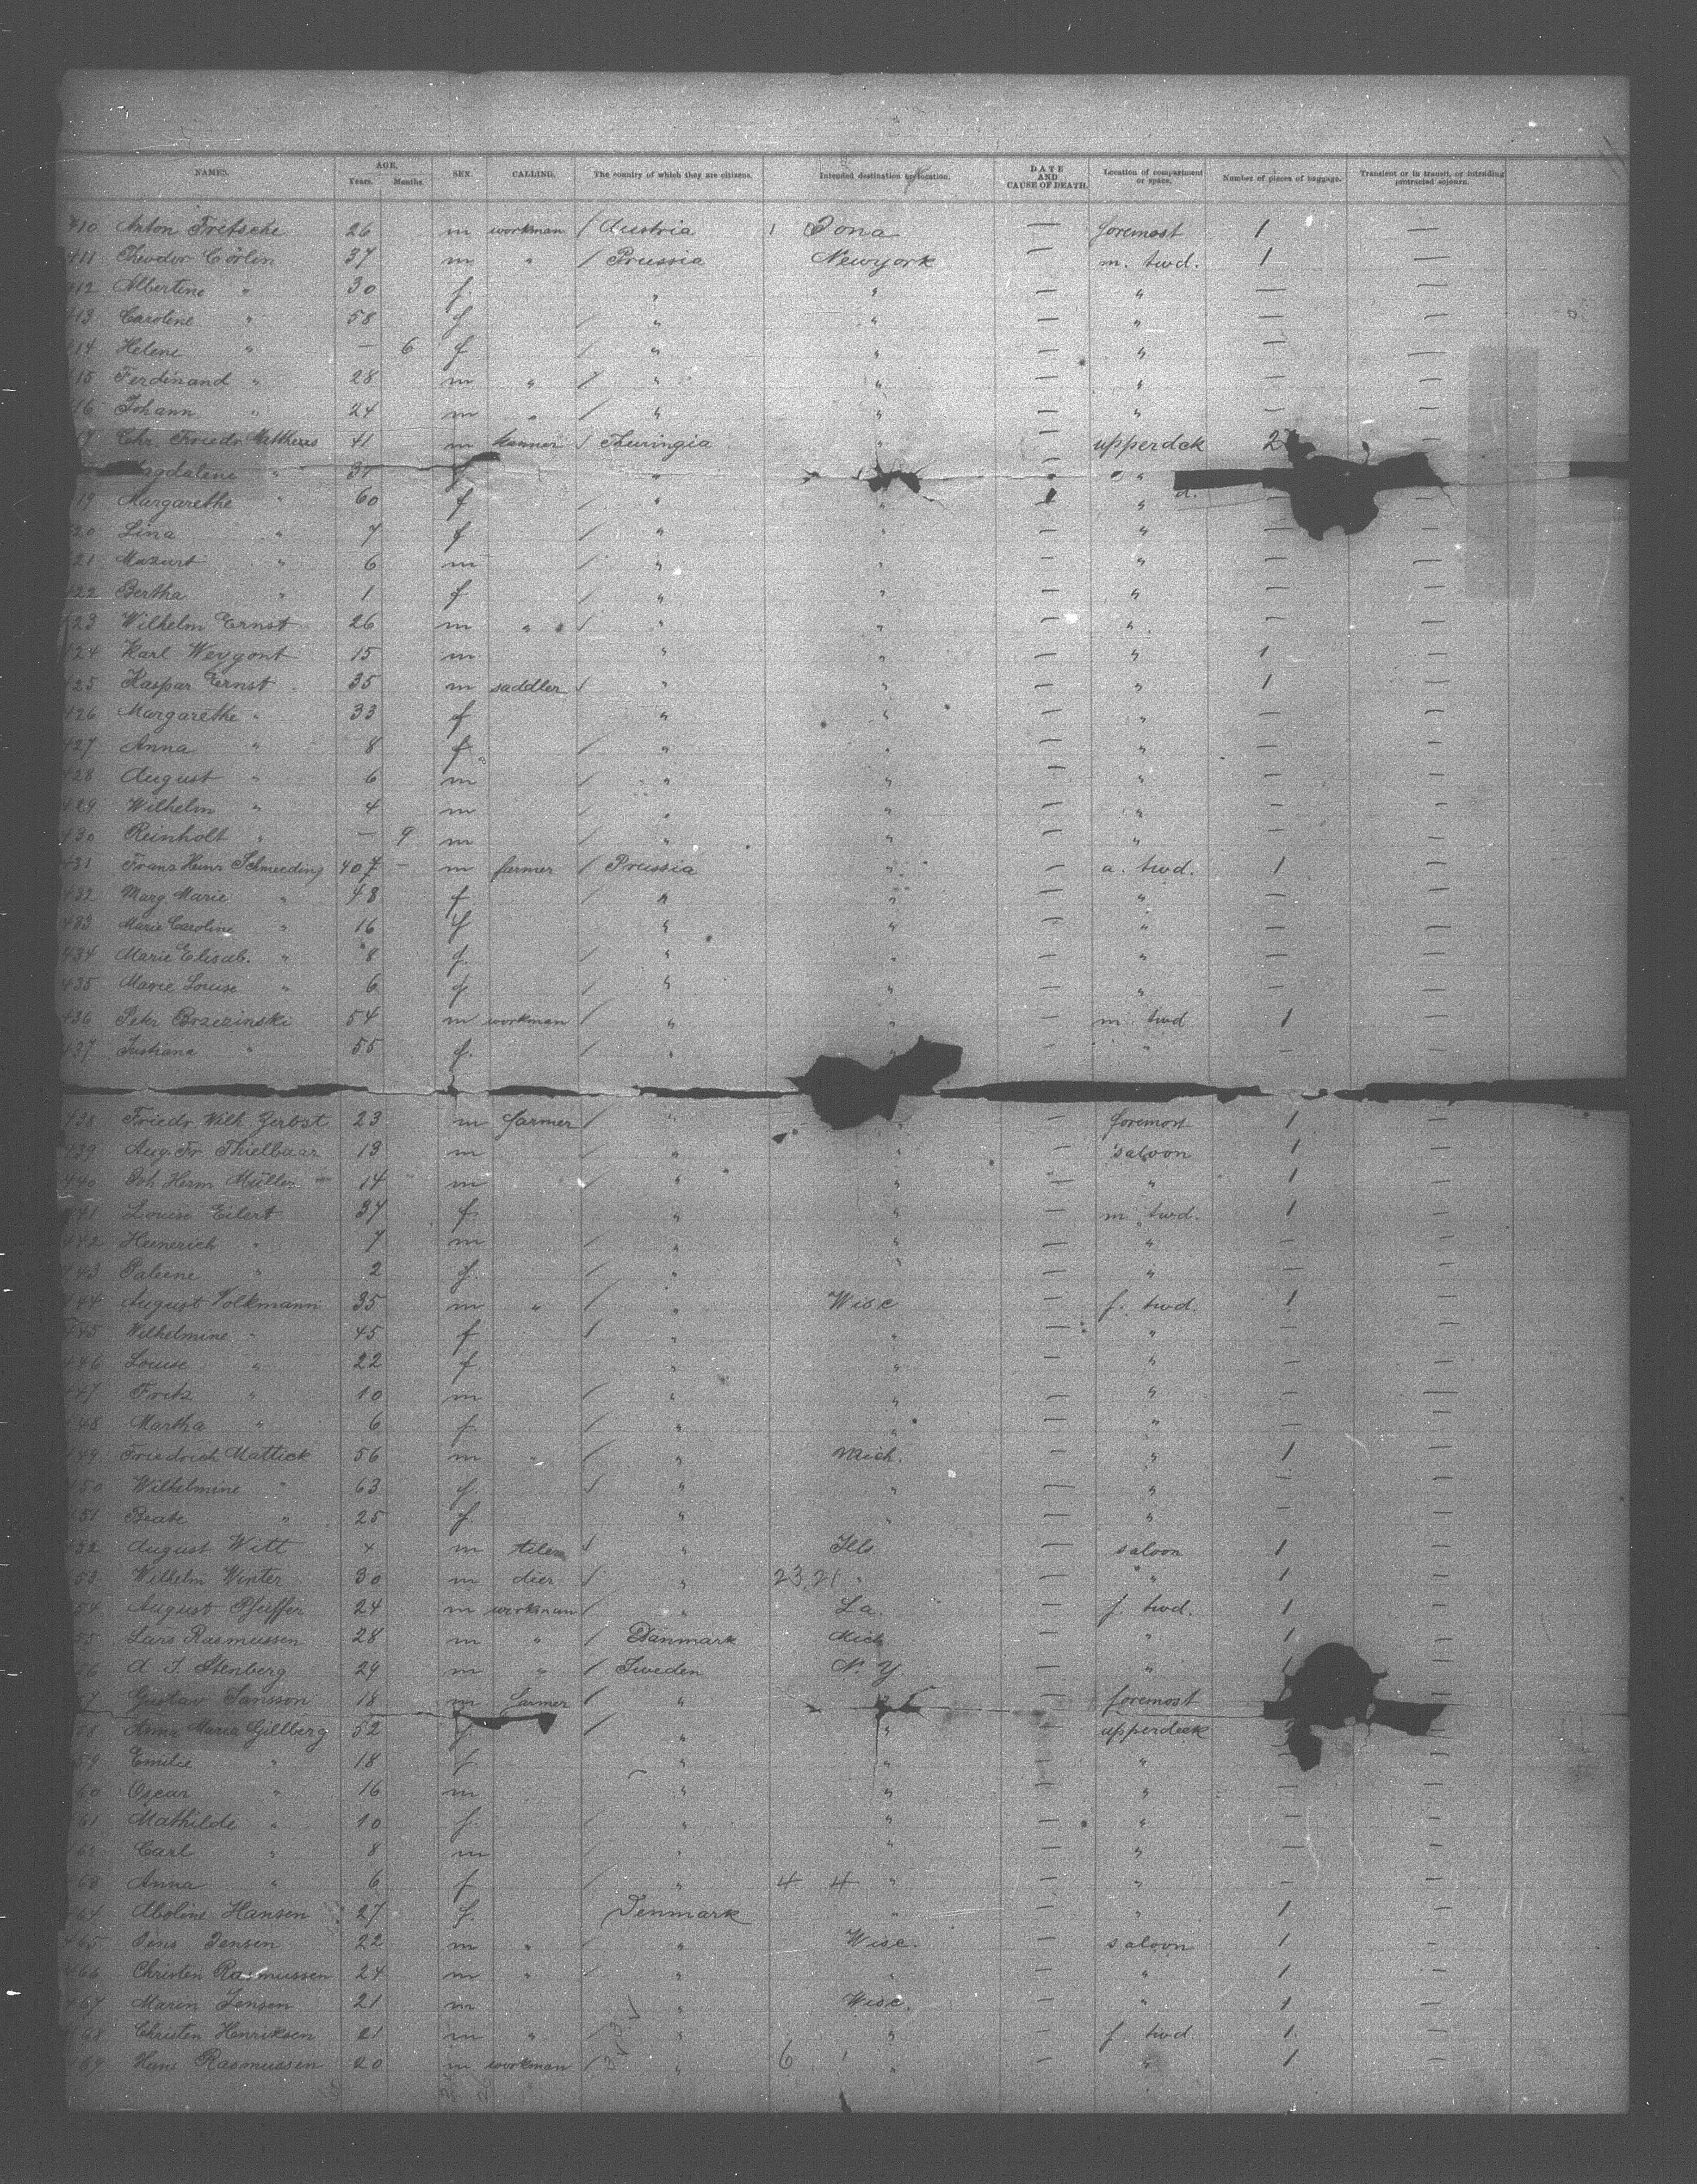 NAMES. AGE. Years. Months. SEX. CALLING. The country of which they are citizens. Intended destination or location. DATE AND CAUSE OF DEATH. Location of compartment or space. Number of pieces of baggage. Transient or in transit, or intending protracted sojourn.
410 Anton Fritsche 26 m workman / Austria 1 Iona — foremost 1 —
411 Theodor Cörlin 37 m " / Prussia Newyork — m. twd. 1 —
412 Albertine " 30 f " " — " — —
413 Caroline " 58 f / " " — " — —
414 Helene " — 6 f / " " — " — —
415 Ferdinand " 28 m " / " " — " — —
416 Johann " 24 m " / " " — " — —
Chr. Friedr. Matthews 41 m / Thuringia " — upperdck 2
Magdalene " 37 f " — "
19 Margarethe " 60 f / " " " —
20 Lina " 7 f / " " — " — —
21 " 6 m / " " — " — —
422 Bertha " 1 f / " " — " — —
423 Wilhelm Ernst 26 m " / " " — " — —
424 Karl Weygont 15 m " " — " 1 —
425 Kaspar Ernst 35 m saddler / " " — " 1 —
426 Margarethe " 33 f " " — " — —
427 Anna " 8 f / " " — " — —
428 August " 6 m / " " — " — —
429 Wilhelm " 4 m / " " — " — —
430 Reinholt " — 9 m / " " — " — —
431 Franz Heinr Schmeeding 407 — m farmer / Prussia " — a. twd. 1 —
432 Marg. Marie " 48 f / " " — " — —
433 Marie Caroline " 16 f " " — " — —
434 Marie Elisab. " 8 f. / " " — " — —
435 Marie Louise " 6 f / " " — " — —
436 Petr Brzezinski 54 m workman / " " — m. twd 1 —
437 Justiana " 55 f. / " " — " — —
438 Friedr. Wilh. Zerbst 23 m farmer / " " — foremost 1 —
439 Aug. Fr. Thielbaar 13 m / " " — saloon 1 —
440 Joh. Herm Müller 14 m / " " — " 1 —
441 Louise Eilert 37 f " " — m. twd. 1 —
442 Heinerich " 7 m / " " — " — —
443 " 2 f. / " " — " — —
444 August Volkmann 35 m " / " Wisc — f. twd. 1 —
445 Wilhelmine " 45 f / " " — " — —
446 Louise " 22 f " " — " — —
447 Fritz " 10 m / " " — " — —
448 Martha " 6 f / " " — " — —
449 Friedrich Mattick 56 m " / " Mich. — " 1 —
450 Wilhelmine " 63 f. / " " — " — —
451 Beate " 25 f " " — " — —
452 August Witt m / " Ills — saloon 1 —
53 Wilhelm Winter 30 m dier / " 23.21 " — " 1 —
54 August Pfeiffer 24 m workman / " La. — f. twd. 1 —
55 Lars Rasmussen 28 m " / Danmark Mich — " 1 —
56 A. J. Stenberg 29 m " / Sweden N. Y. — " 1 —
57 Gustav Jansson 18 m farmer / " — foremost
58 Anna Maria Gillberg 52 f. / " " — upperdeck —
59 Emilie " 18 f. " " — " — —
60 Oscar " 16 m " " — " — —
61 Mathilde " 10 f. / " " — " — —
62 Carl " 8 m / " " — " — —
463 Anna " 6 f / " 4 4 " — " — —
464 Aboline Hansen 27 f. Denmark " — " 1 —
465 Jens Jensen 22 m " / " Wisc. — saloon 1 —
466 Christen Rasmussen 24 m " / " " — " 1 —
467 Maren Jensen 21 m " Wisc. — " 1 —
468 Christen Henriksen 21 m " / " " — f. twd. 1 —
469 Hans Rasmussen 20 m workman / " 6 " — " 1 —